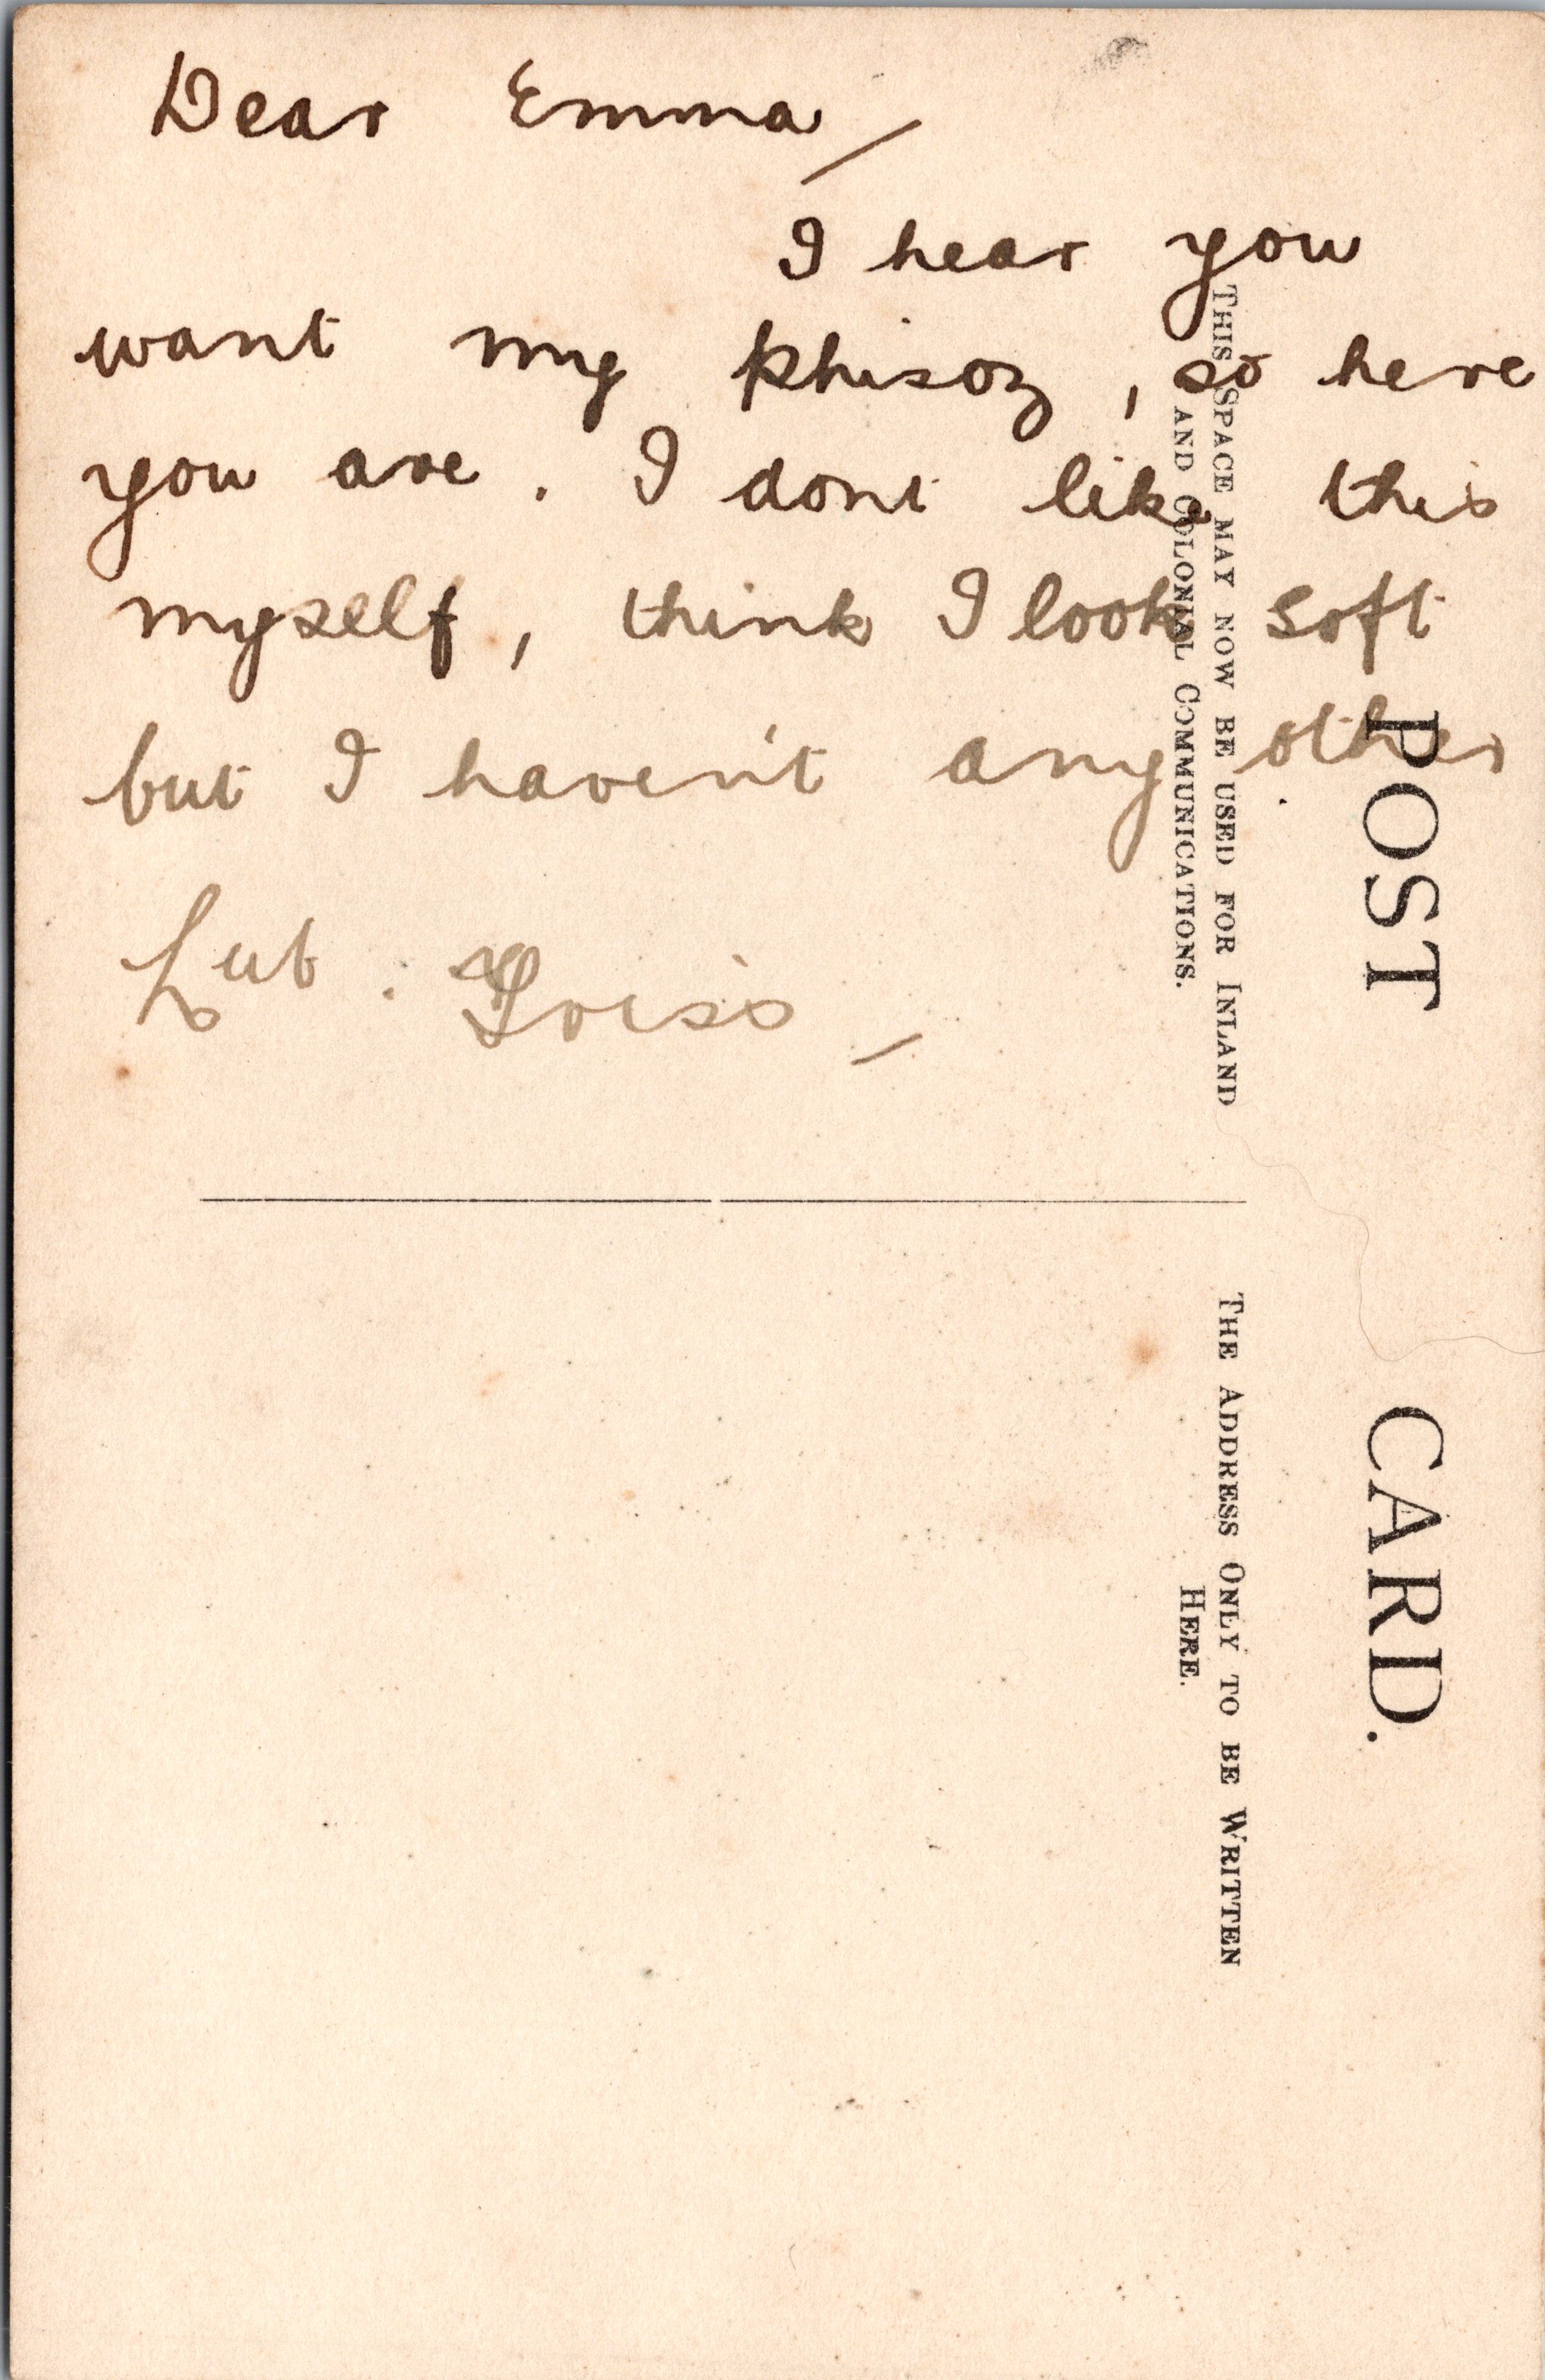 Dear Emma/
I hear you
want my phisog, so here
you are. I dont like this
myself, think I look soft
but I haven't any other
Lub.
POST CARD.
THIS SPACE MAY NOW BE USED FOR INLAND
AND COLONIAL COMMUNICATIONS.
THE ADDRESS ONLY TO BE WRITTEN
HERE.